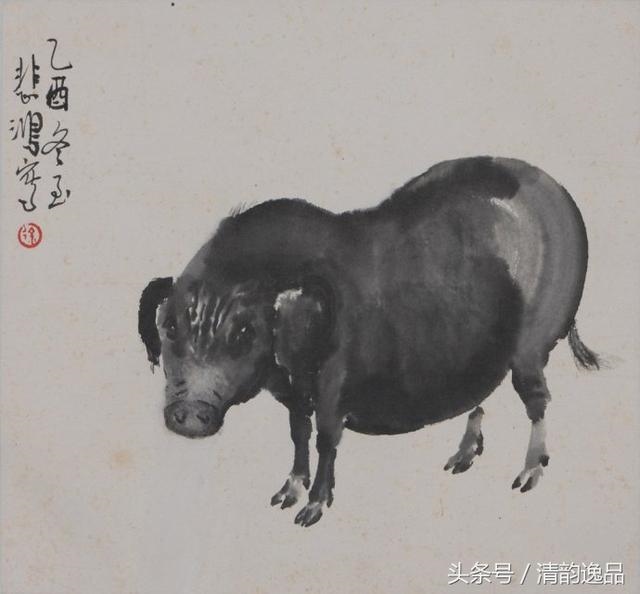 乙酉冬至
悲鸿写
徐
头条号 / 清韵逸品